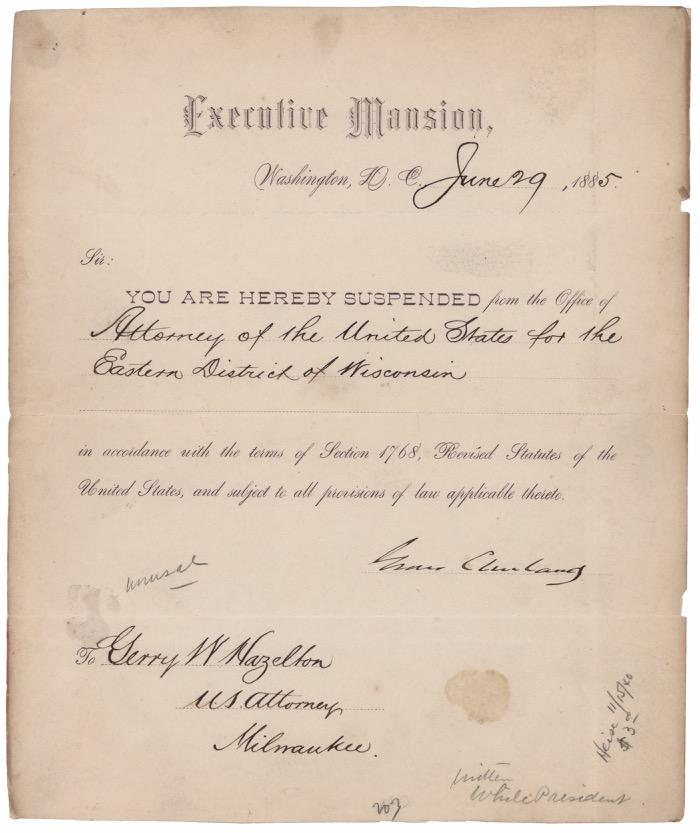 Executive Mansion,
Washington, D. C. June 29, 1885.
Sir:
YOU ARE HEREBY SUSPENDED from the Office of
Attorney of the United States for the
Eastern District of Wisconsin
in accordance with the terms of Section 1768, Revised Statutes of the
United States, and subject to all provisions of law applicable thereto.
Grover Cleveland
unusal
To Gerry W Hazelton
US Attorney
Milwaukee.
Heise 11/15/40
$3
written
While President
203